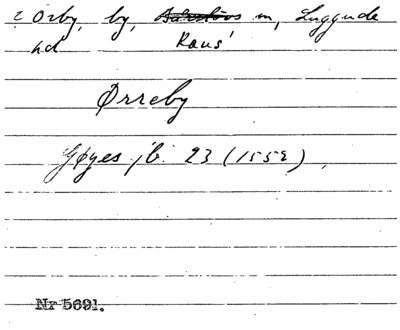 Orby, by, m, Luggude
hd Raus'
Ørreby
Gøyes jb. 23 (1552),
Nr 5691.